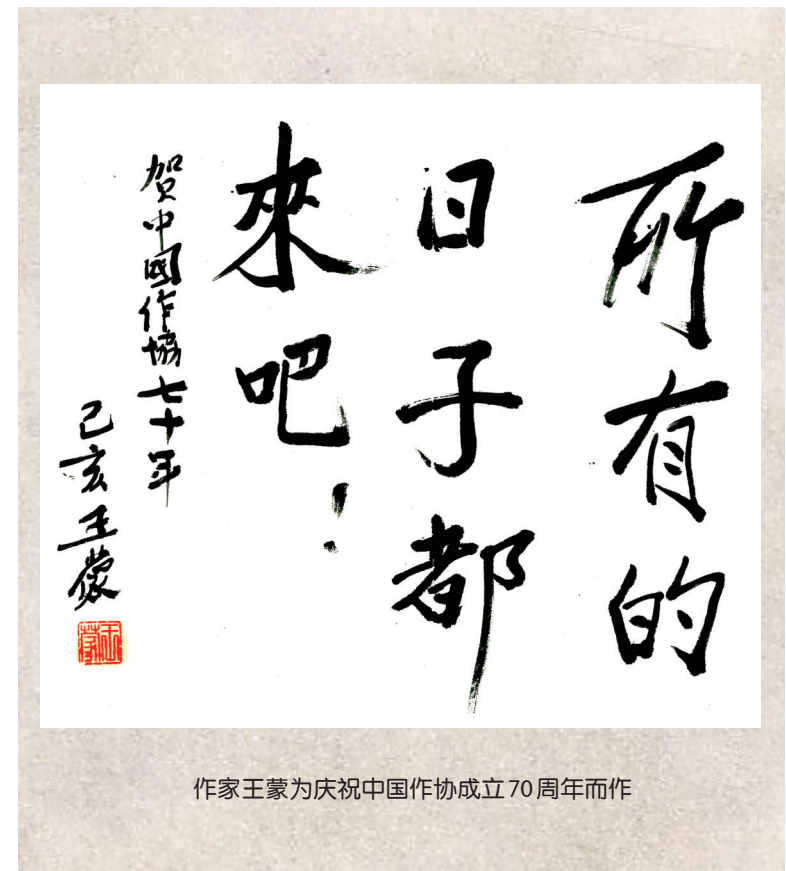 所有的
日子都
來吧！
贺中國作協七十年
己亥王蒙
王蒙
作家王蒙为庆祝中国作协成立70周年而作